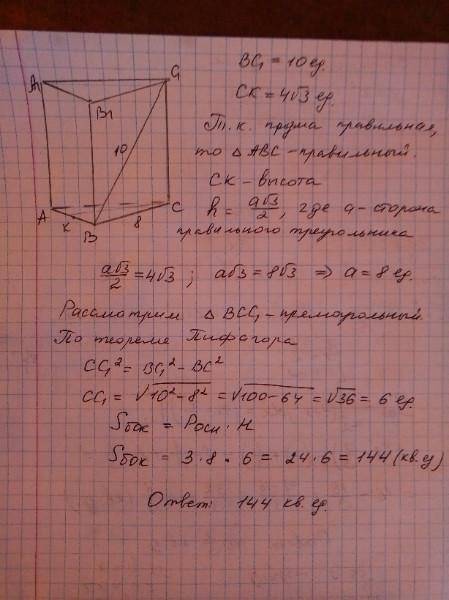 A₁
C₁
B₁
10
A
K
B
8
C
BC₁ = 10 ед.
CK = 4√3 ед.
Т.к. призма правильная,
то △ABC - правильный.
CK - высота
h = a√3/2, где a - сторона
правильного треугольника
a√3/2 = 4√3 ; a√3 = 8√3 ⇒ a = 8 ед.
Рассмотрим △BCC₁ - прямоугольный.
По теореме Пифагора
CC₁² = BC₁² - BC²
CC₁ = √10² - 8² = √100 - 64 = √36 = 6 ед.
Sбок = Pосн · H
Sбок = 3 · 8 · 6 = 24 · 6 = 144 (кв. ед)
Ответ: 144 кв. ед.